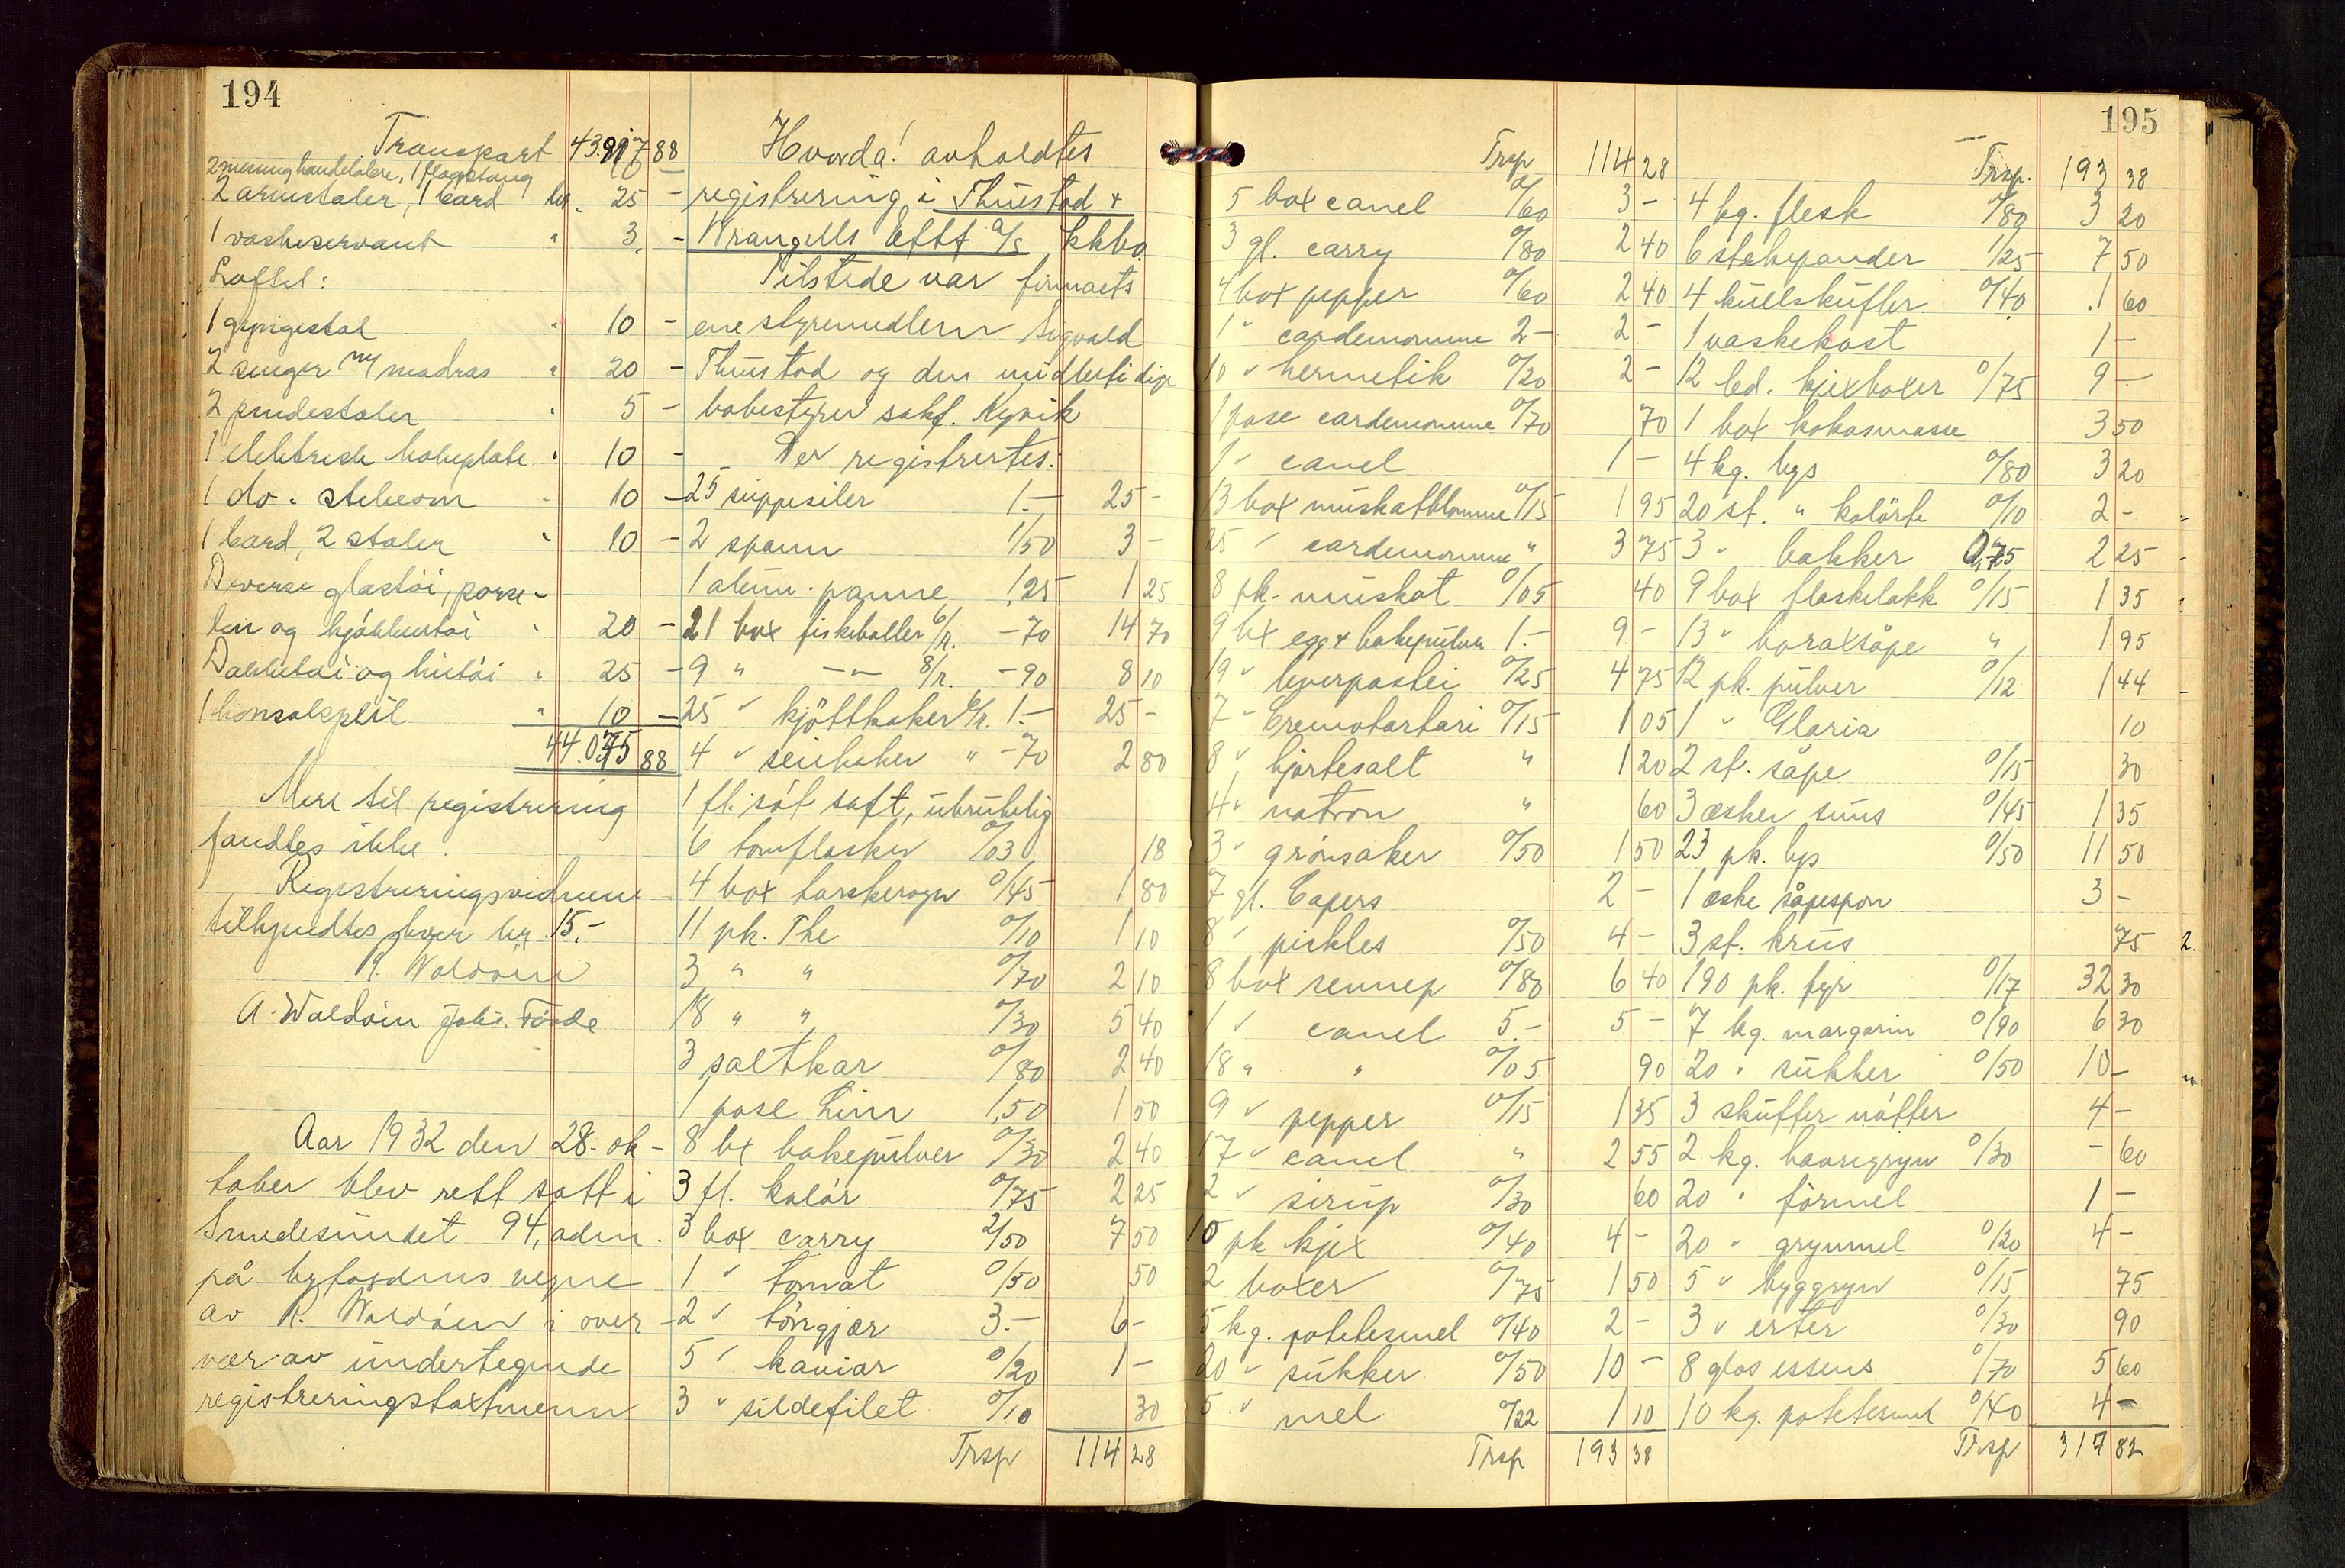 194
Transport 43.917 88
2 messinghandelabre, 1 flagstang 10 -
2 armstoler, 1 bord kr. 25 -
1 vaskeservant " 3. -
Loftet:
1 gyngestol " 10 -
2 senger m/ madras " 20 -
2 pindestoler " 5 -
1 elektrisk kokeplate " 10 -
1 do. stekeovn " 10 -
1 bord, 2 stoler " 10 -
Diverse glastöi, porse-
len og kjökkentöi " 20 -
Dekketöi og lintöi " 25 -
1 konsolspeil " 10 -
44.075 88
Mere til registrering
fandtes ikke.
Registreringsvidnene
tilkjendtes hver kr. 15.-
R. Waldöen
A. Waldöen Johs. Förde
Aar 1932 den 28. ok-
tober blev rett satt i
Smedesundet 94, adm.
på byfogdens vegne
av R. Waldöen i over-
vær av undertegnede
registreringstaxtmenn
Hvorda! avholdtes
registrering i Thuestad &
Wrangells Eftf a/s kkbo.
Tilstede var firmaets
ene styremedlem Sigvald
Thuestad og den midlertidige
bobestyrer sakf. Kyvik
Der registrertes:
25 suppesiler 1.- 25 -
2 spann 1/50 3 -
1 alum. panne 1,25 1 25
21 box fiskeboller 6/r. -70 14 70
9 " -"- 8/r. -90 8 10
25 " kjöttkaker 6/r. 1.- 25 -
4 " seikaker " -70 2 80
1 fl. söt saft, ubrukelig
6 tomflasker 0/03 18
4 box torskerogn 0/45 1 80
11 pk. The 0/10 1 10
3 " " 0/70 2 10
18 " " 0/30 5 40
3 saltkar 0/80 2 40
1 pose Lim 1,50 1 50
8 bx bakepulver 0/30 2 40
3 fl. kolör 0/75 2 25
3 box carry 2/50 7 50
1 " tomat 0/50 50
2 " törrgjær 3.- 6 -
5 " kaviar 0/20 1 -
3 " sildefilet 0/10 30
Trsp 114 28
195
Trsp 114 28
5 box canel 0/60 3 -
3 gl. carry 0/80 2 40
4 box pepper 0/60 2 40
1 " cardemomme 2- 2 -
10 " hermetik 0/20 2 -
1 pose cardemomme 0/70 70
1 " canel 1 -
13 box muskatblomme 0/15 1 95
25 " cardemomme " 3 75
8 pk. muskat 0/05 40
9 bx egg & bakepulver 1.- 9 -
19 " leverpostei 0/25 4 75
7 " Cremotartari 0/15 1 05
8 " hjortesalt " 1 20
4 " natron " 60
3 " grönsaker 0/50 1 50
7 gl. Capers 2 -
8 " pickles 0/50 4 -
8 box sennep 0/80 6 40
1 " canel 5.- 5 -
18 " " 0/05 90
9 " pepper 0/15 1 35
17 " canel " 2 55
2 " sirup 0/30 60
10 pk kjex 0/40 4 -
2 boxer 0/75 1 50
5 kg. potetesmel 0/40 2 -
20 " sukker 0/50 10 -
5 " mel 0/22 1 10
Trsp 193 38
Trsp. 193 38
4 kg. flesk 0/80 3 20
6 stekepander 1/25 7 50
4 kullskufler 0/40 1 60
1 vaskekost 1 -
12 bd. kjexboxer 0/75 9 -
1 box kokosmasse 3 50
4 kg. lys 0/80 3 20
20 st. " kolörte 0/10 2 -
3 " bakker 0,75 2 25
9 box flaskelakk 0/15 1 35
13 " boraxsåpe " 1 95
12 pk. pulver 0/12 1 44
1 " Gloria 10
2 st. såpe 0/15 30
3 æsker snus 0/45 1 35
23 pk. lys 0/50 11 50
1 æske såpespon 3 -
3 st. krus 75
190 pk. fyr 0/17 32 30
7 kg. margarin 0/90 6 30
20 " sukker 0/50 10 -
3 skuffer nötter 4 -
2 kg. havregryn 0/30 - 60
20 " formel 1 -
20 " grynmel 0/20 4 -
5 " byggryn 0/15 75
3 " erter 0/30 90
8 glas essens 0/70 5 60
10 kg. potetesmel 0/40 4 -
Trsp 317 82